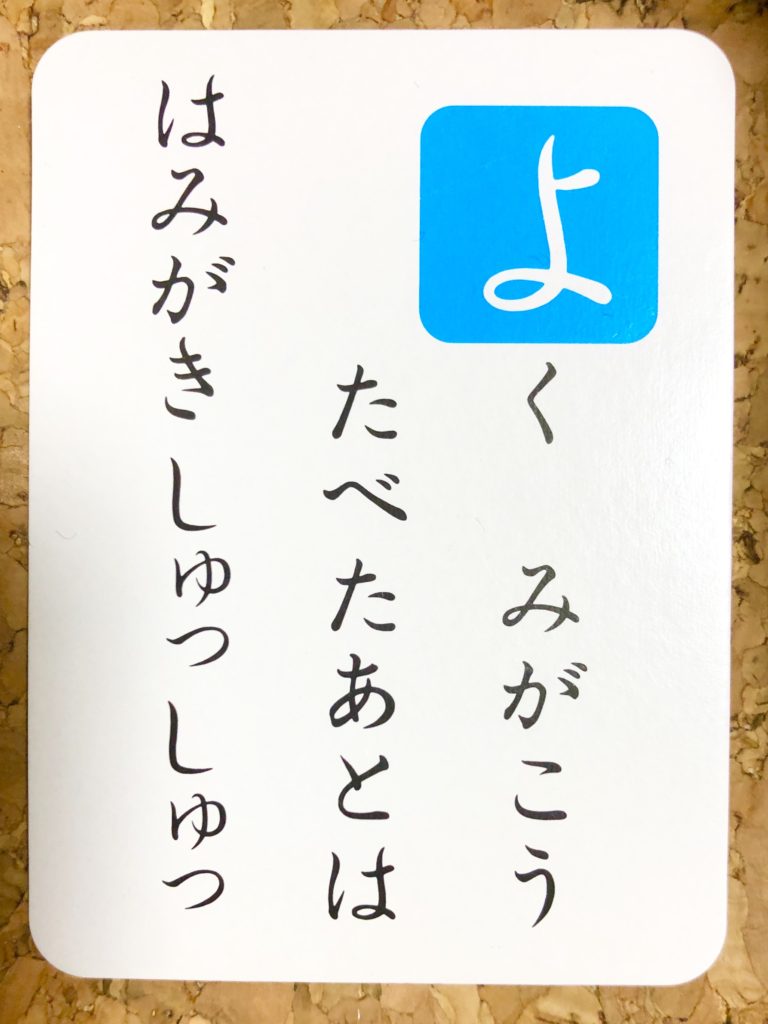 よく みがこう
たべたあとは
はみがきしゅっしゅっ